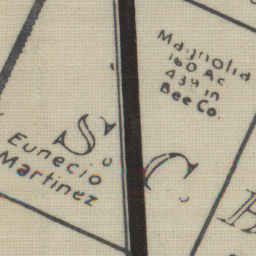 Magnolia
160 Ac
439 in
Bee Co.
S.
Eunecio
Martinez
C.